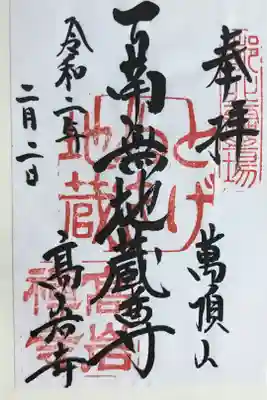 奉拝
萬頂山
南無地蔵尊
とげ
ぬき
地蔵
令和二年
二月二日
高岩寺